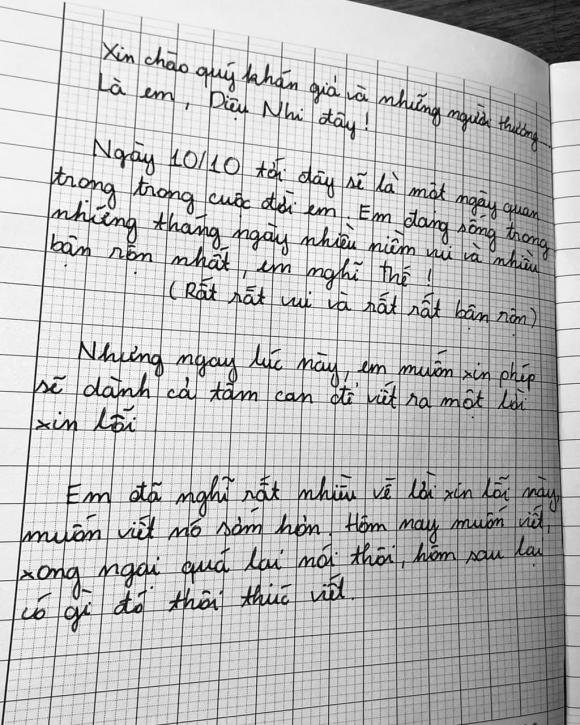 Xin chào quý khán giả và những người thương...
Là em, Diệu Nhi đây!
Ngày 10/10 tới đây sẽ là một ngày quan
trọng trong cuộc đời em. Em đang sống trong
những tháng ngày nhiều niềm vui và nhiều
bận rộn nhất, em nghĩ thế!
(Rất rất vui và rất rất bận rộn)
Nhưng ngay lúc này, em muốn xin phép
sẽ dành cả tâm can để viết ra một lời
xin lỗi
Em đã nghĩ rất nhiều về lời xin lỗi này,
muốn viết nó sớm hơn. Hôm nay muốn viết,
xong ngại quá lại mới thôi, hôm sau lại
có gì đó thôi thúc viết.